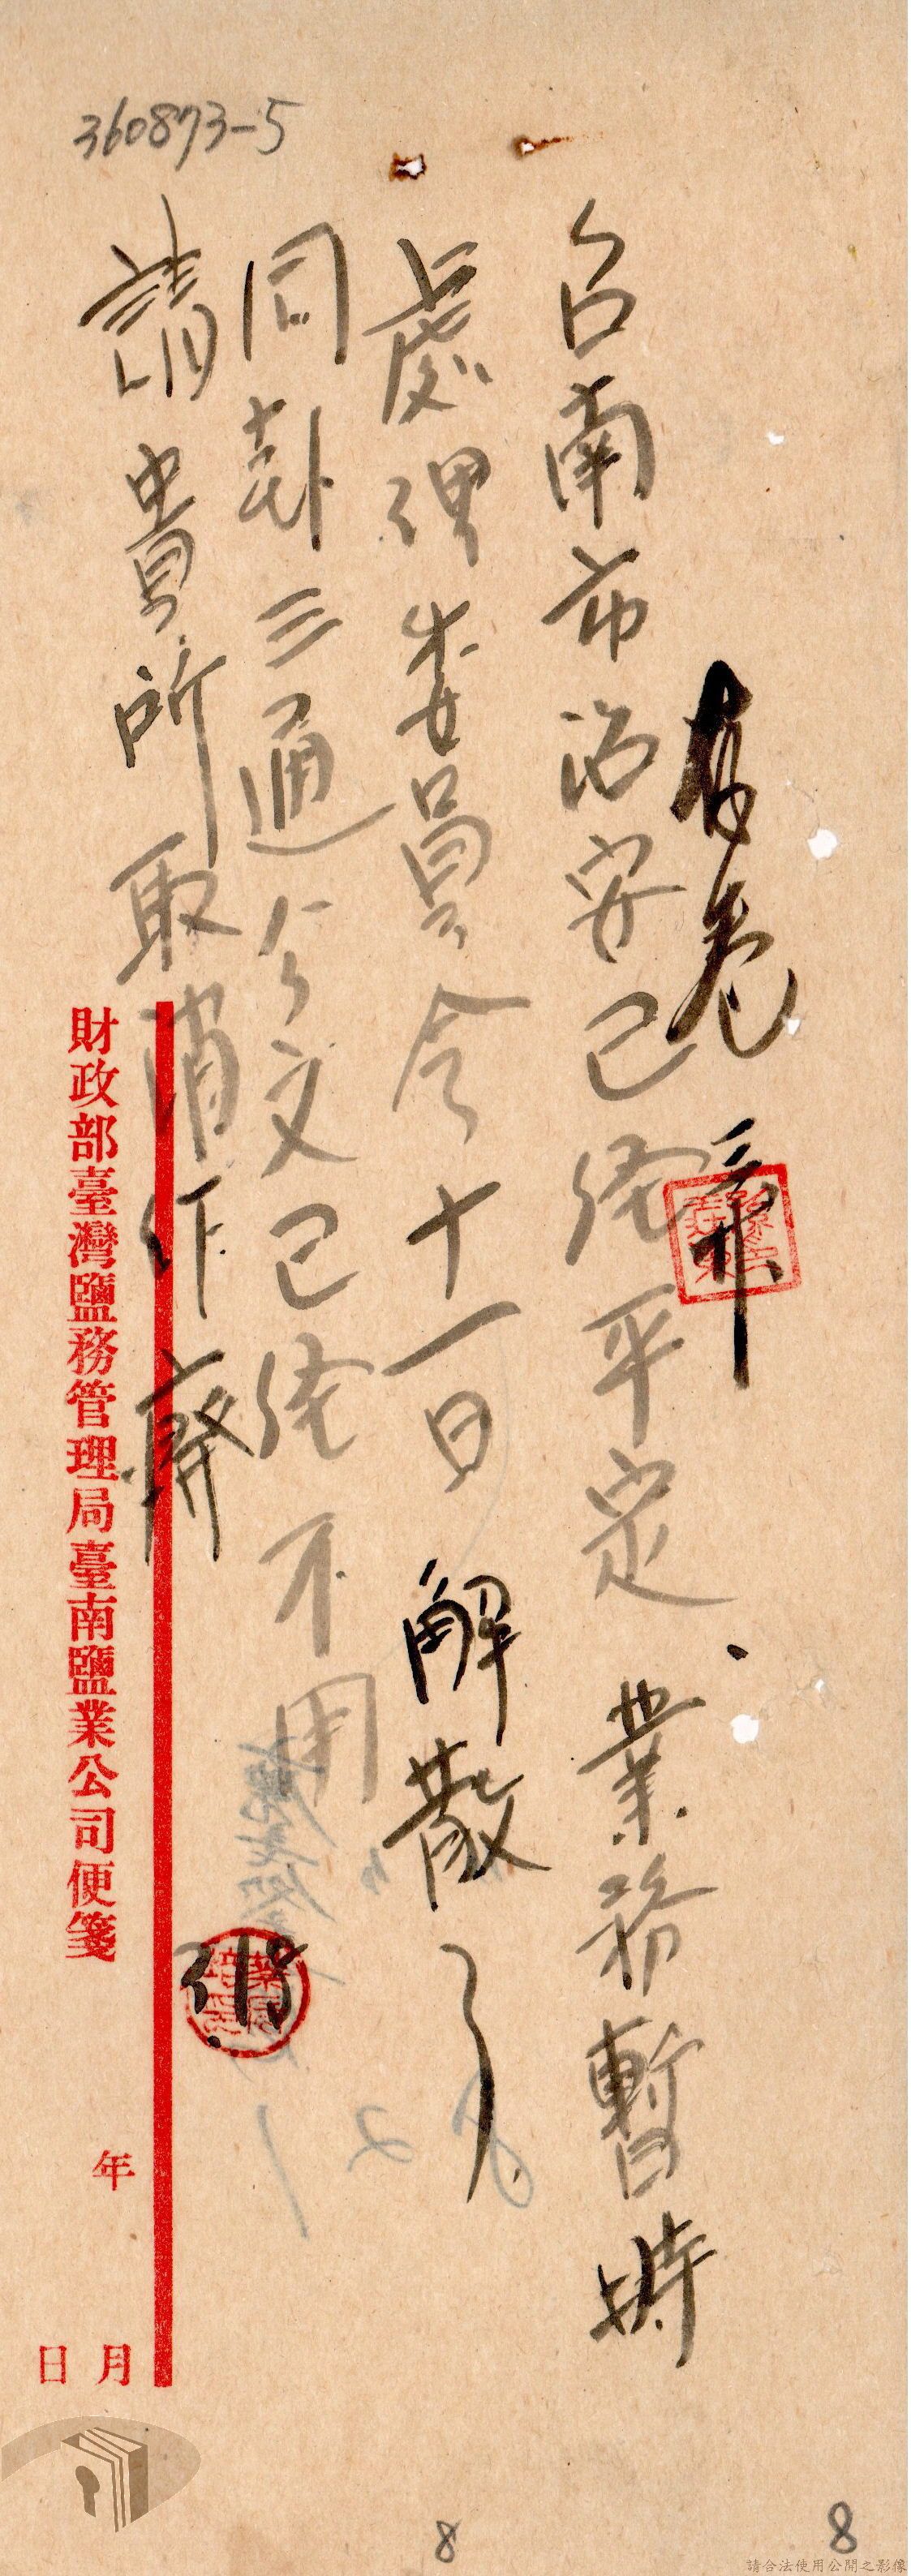 360873-5
存卷
台南市治安已经平定、業務暫時
處理委員会十一日解散了
同封三通公文已经不用
請貴所取消作廢
財政部臺灣鹽務管理局臺南鹽業公司便箋
年
月
日
8
8
請合法使用公開之影像